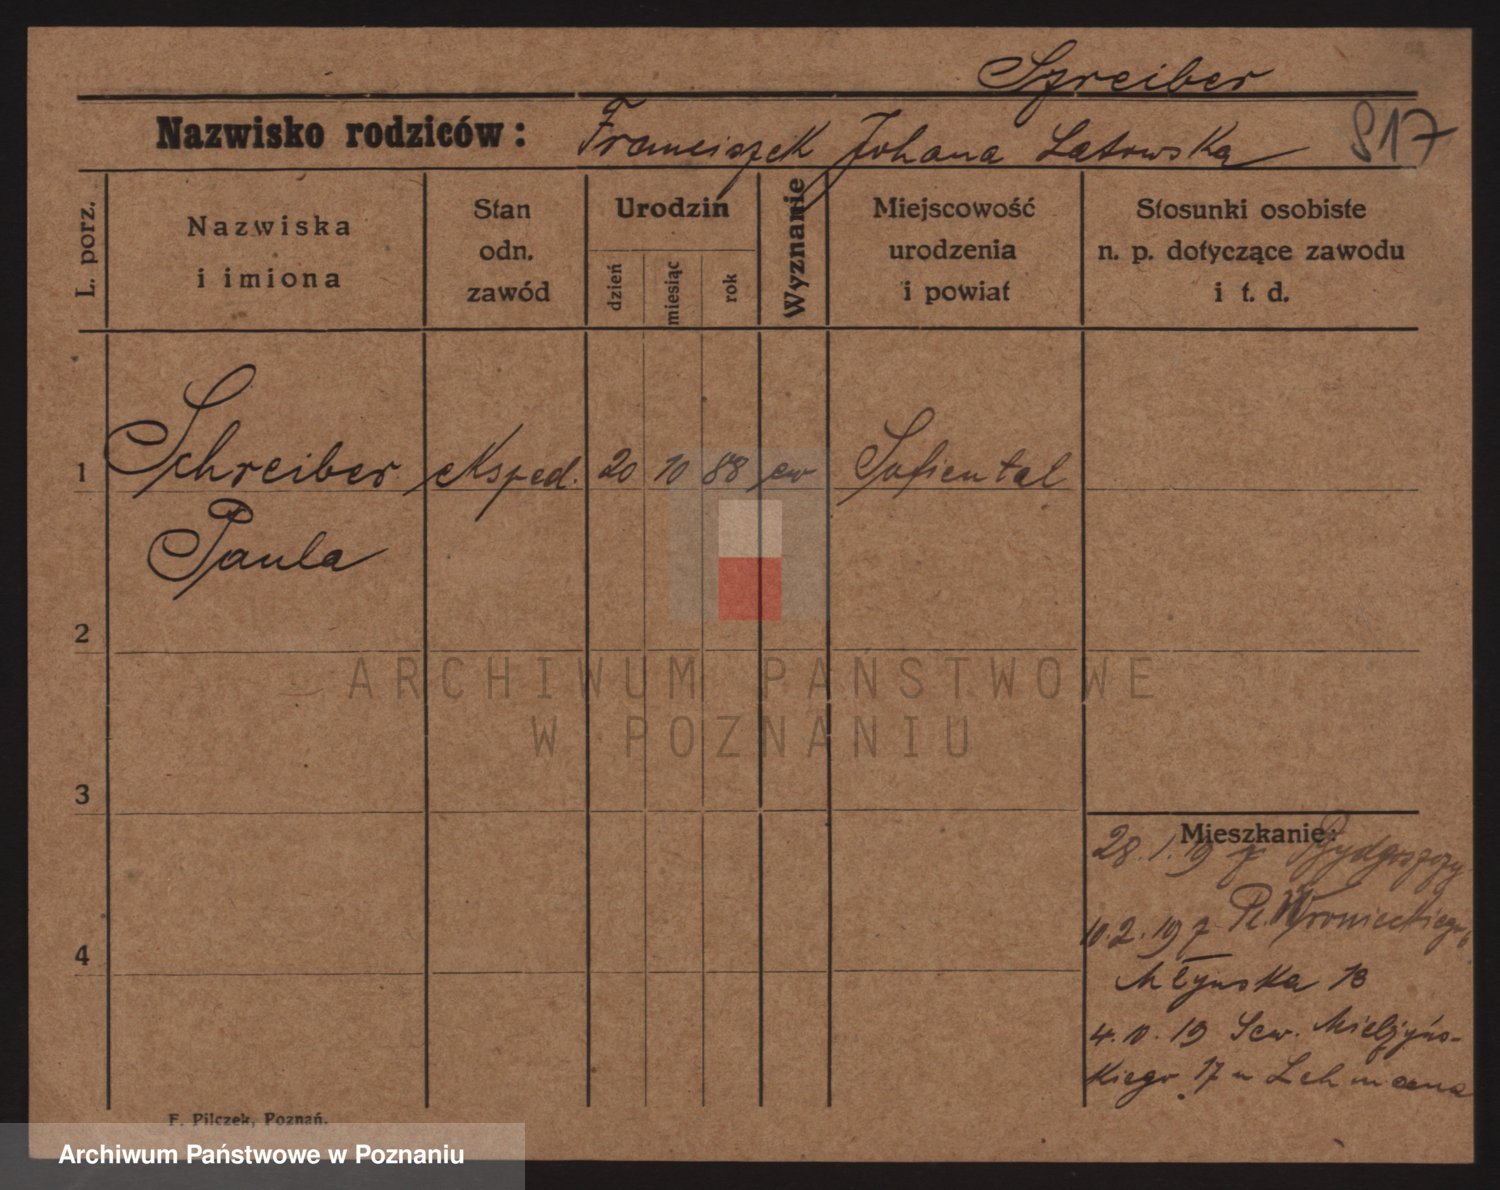 Szreiber
Nazwisko rodziców: Franciszek Johana Latowska
817
L. porz.
Nazwiska
i imiona
Stan
odn.
zawód
Urodzin
dzień
miesiąc
rok
Wyznanie
Miejscowość
urodzenia
i powiat
Stosunki osobiste
n. p. dotyczące zawodu
i t. d.
1 Schreiber eksped. 20 10 88 ew Sofiental
Paula
2
ARCHIWUM PAŃSTWOWE
W POZNANIU
3
Mieszkanie:
28.1.19 z Bydgoszczy
4
10.2.19 z Pl. Wronieckiego
Młyńska 13
4.10.19 Sew. Mielżyńs-
kiego 17 u Lehmanna
F. Pilczek, Poznań.
Archiwum Państwowe w Poznaniu